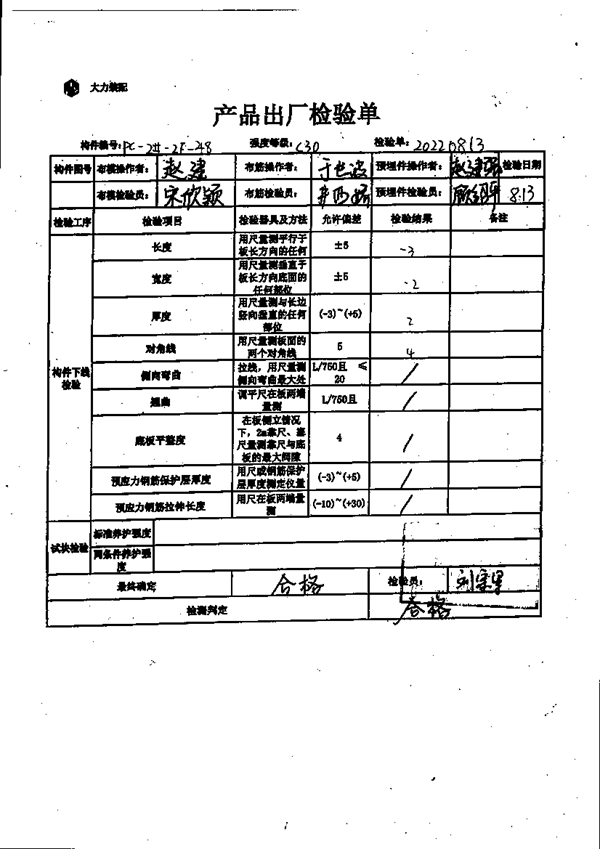 大力装配
产品出厂检验单
构件编号: PC-2#-2F-48 强度等级: C30 检验单: 20220813
构件图号 布模操作者: 赵建 布筋操作者: 预埋件操作者: 检验日期
布模检验员: 宋欣颖 布筋检验员: 预埋件检验员: 8.13
检验工序 检验项目 检验器具及方法 允许偏差 检验结果 备注
构件下线检验
长度 用尺量测平行于板长方向的任何 ±5 -3
宽度 用尺量测垂直于板长方向底面的任何部位 ±5 -2
厚度 用尺量测与长边竖向垂直的任何部位 (-3)~(+5) 2
对角线 用尺量测板面的两个对角线 5 4
侧向弯曲 拉线，用尺量测侧向弯曲最大处 L/750且 ≤20 /
翘曲 调平尺在板两端量测 L/750且 /
底板平整度 在板侧立情况下，2m靠尺、塞尺量测靠尺与底板的最大间隙 4 /
预应力钢筋保护层厚度 用尺或钢筋保护层厚度测定仪量 (-3)~(+5) /
预应力钢筋拉伸长度 用尺在板两端量测 (-10)~(+30) /
试块检验
标准养护强度
同条件养护强度
最终确定 合格 检验员:
检测判定 合格